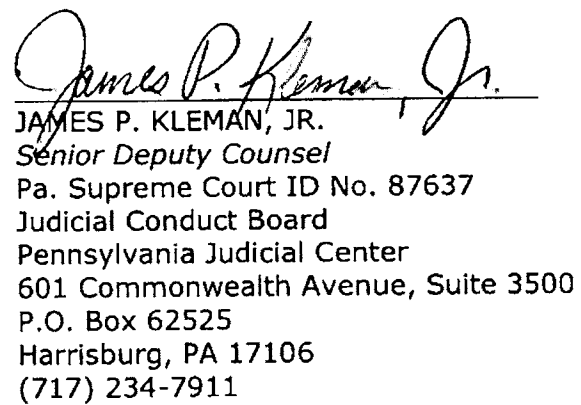 James P. Kleman, Jr.
JAMES P. KLEMAN, JR.
Senior Deputy Counsel
Pa. Supreme Court ID No. 87637
Judicial Conduct Board
Pennsylvania Judicial Center
601 Commonwealth Avenue, Suite 3500
P.O. Box 62525
Harrisburg, PA 17106
(717) 234-7911